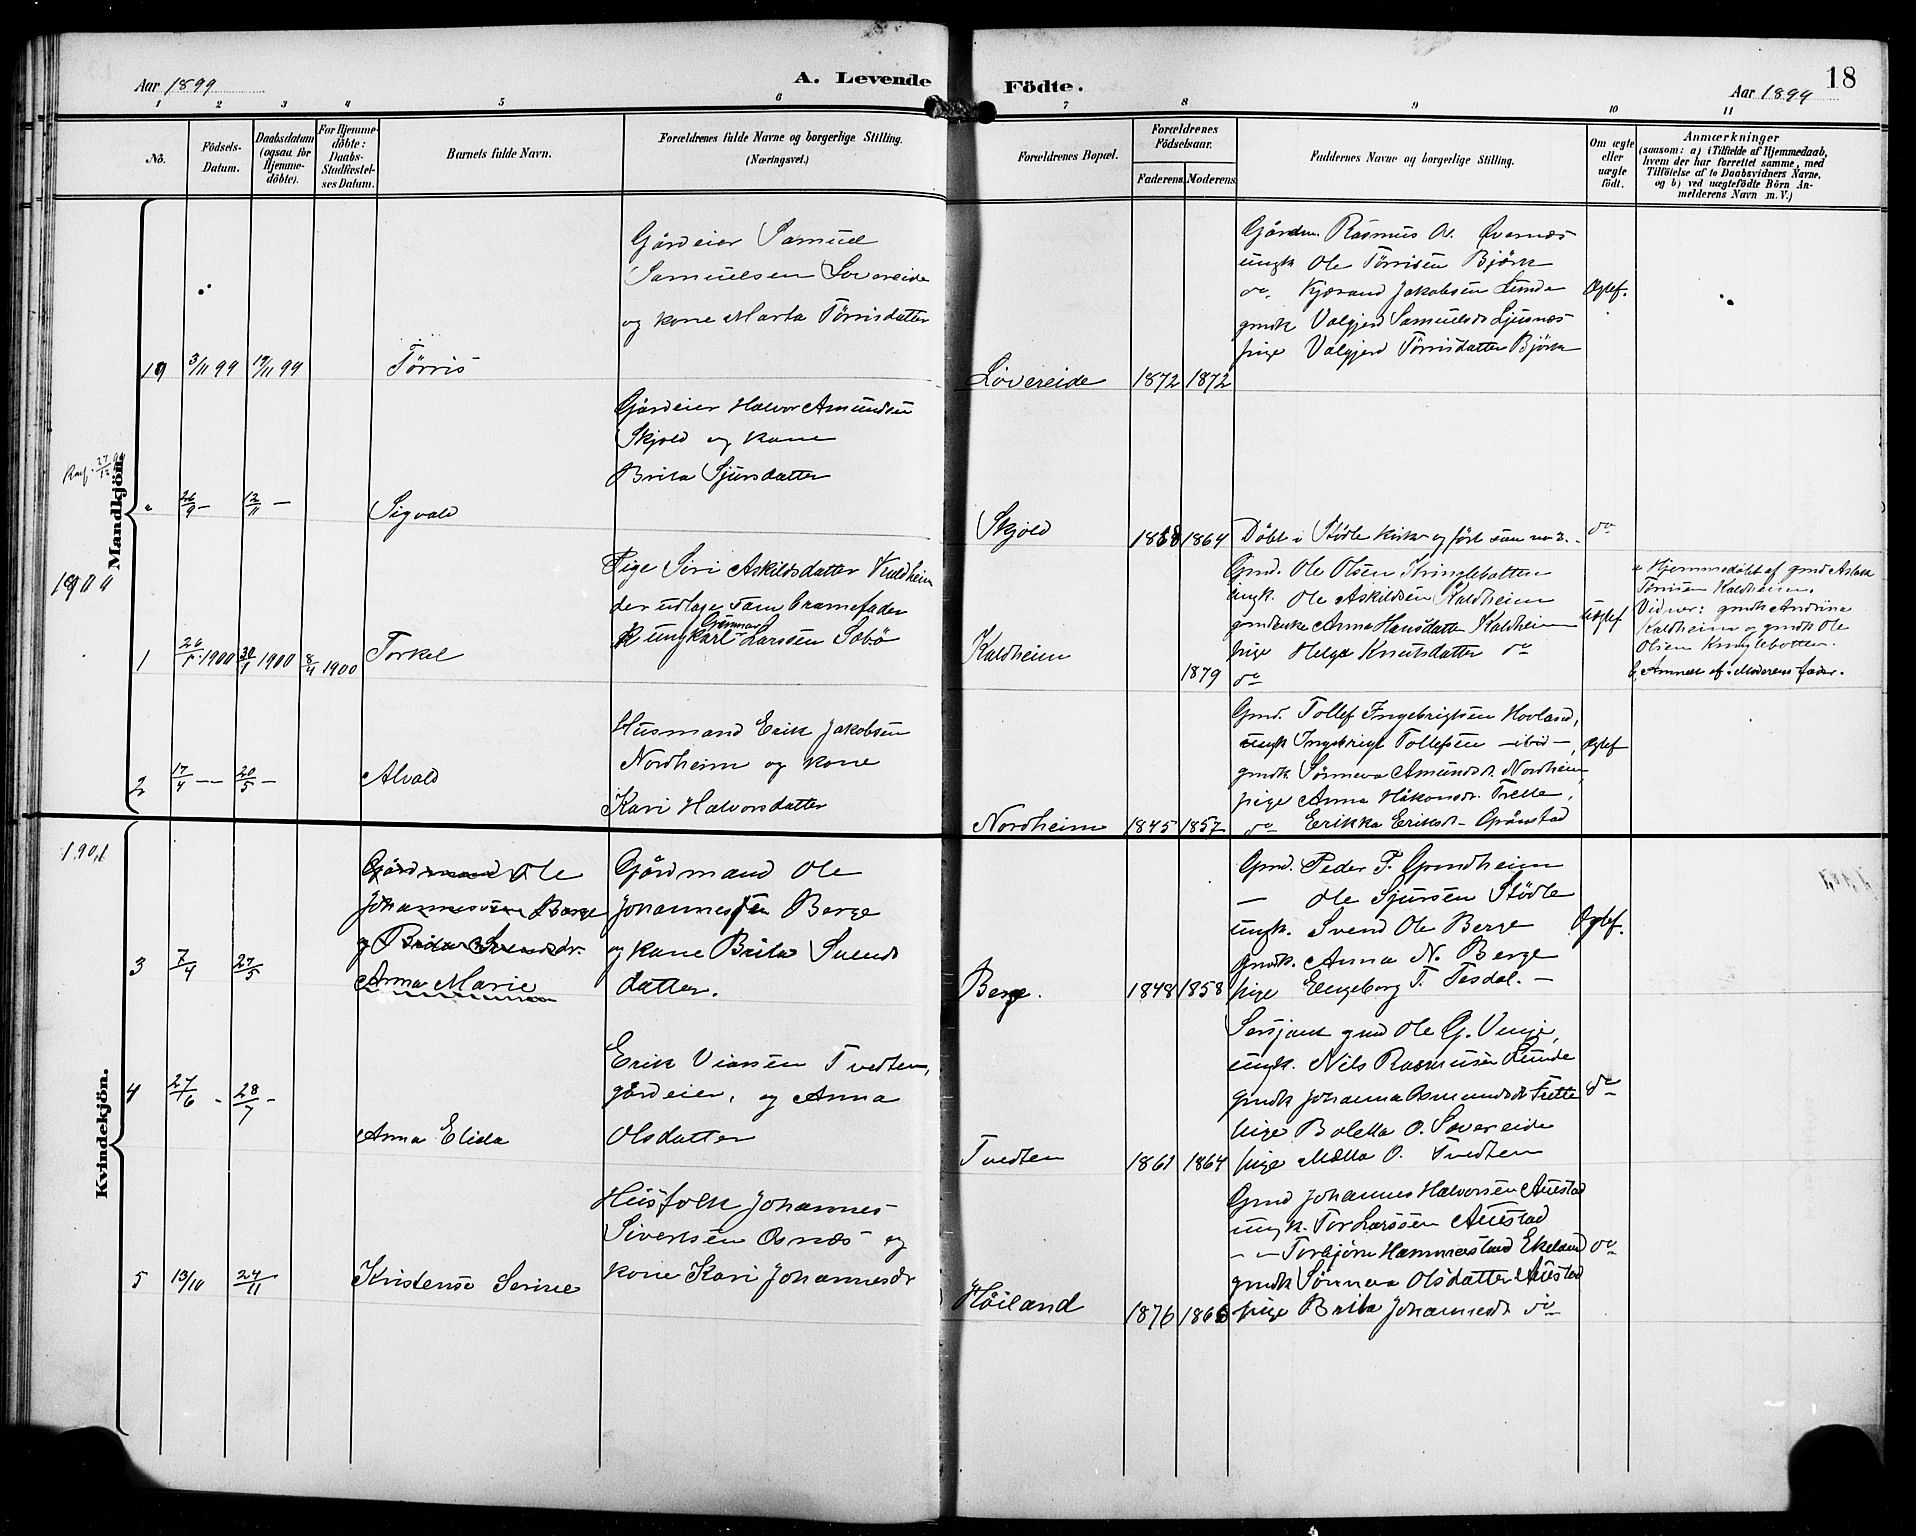 Aar 1899
A. Levende
Födte.
Aar 1899
18
1 2 3 4 5 6 7 8 9 10 11
No.
Födsels-
Datum.
Daabsdatum
(ogsaa for
Hjemme-
döbte).
For Hjemme-
döbte:
Daabs-
Stadfæstel-
ses Datum.
Barnets fulde Navn.
Forældrenes fulde Navne og borgerlige Stilling.
(Næringsvei.)
Forældrenes Bopæl.
Forældrenes
Födselsaar.
Faderens. Moderens.
Faddernes Navne og borgerlige Stilling.
Om ægte
eller
uægte
födt.
Anmærkninger
(saasom: a) i Tilfælde af Hjemmedaab,
hvem der har forrettet samme, med
Tilföielse af to Daabsvidners Navne,
og b) ved uægtefödte Börn An-
melderens Navn m. V.)
Mandkjön.
19 3/11 99 19/11 99
Tørris
Gårdeier Samuel
Samuelsen Løvereide
og kone Marta Tørrisdatter
Løvereide
1872 1872
Gårdm. Rasmus O. Øvernæs
ungk Ole Tørrisen Bjørk
do. Kjærand Jakobsen Lunde
gmdk Valgjerd Samuelsdr Ljusnæs
pige Valgjerd Tørrisdatter Bjørk
Ægtef.
27/12 99
26/9 — 12/11 —
Sigvald
Gårdeier Halvor Amundsen
Skjold og kone
Brita Sjursdatter
Skjold
1868 1864
Døbt i Stødle Kirke og ført som no 2.
do
1900
1 26/1 1900 30/1 1900 8/4 1900
Torkel
Pige Siri Askildsdatter Kaldheim
der udlagde som barnefader
ungkarl Gunnar Larssen Søbø
Kaldheim
1879
Gmd. Ole Olsen Kringlebotten
ungk. Ole Askildsen Kaldheim
gmdenke Anna Hansdatter Kaldheim
pige Helga Knutsdatter do
do
Uægtef
a Hjemmedøbt af gmd Aslak
Tørrisen Kaldheim.
Vidner: gmdk Andrina
Kaldheim og gmdk Ole
Olsen Kringlebotten.
b, Anmeldt af Moderens fader.
2 17/4 — 20/5 —
Alvald
Husmand Erik Jakobsen
Nordheim og kone
Kari Halvorsdatter
Nordheim
1845 1857
Gmd. Tollef Ingebrigtsen Hovland,
ungk Ingebrigt Tollefsen — ibid —,
gmdk Sønneva Amundsdr. Nordheim,
pige Anna Håkonsdr. Trette,
do Erikka Eriksdr. Grønstad
Ægtef
Kvindekjön.
1901
3 7/4 27/5
Gårdmand Ole
Johannessen Berge
og Brita Svendsdr.
Anna Marie
Gårdmand Ole
Johannessen Berge
og kone Brita Svends
datter.
Berge.
1848 1858
Gmd. Peder T. Grindheim
— Ole Sjursen Stødle
ungk. Svend Ole Berge
gmdk. Anna N. Berge
pige Engeborg T. Tesdal. —
Ægtef.
4 27/6 - 28/7 -
Anna Elida
Erik Viassen Tvedten,
gårdeier, og Anna
Olsdatter
Tvedten
1861 1864
Sersjant gmd Ole G. Vinje,
ungk. Nils Rasmusen Lunde
gmdk Johanna Osmundsdr Trette
pige Boletta O. Løvereide
pige Malla O. Tvedten
do
5 13/10 24/11
Kristense Serine
Husfolk Johannes
Sivertsen Osnæs og
kone Kari Johannesdr
Høiland
1876 1866
Gmd Johannes Halvorsen Austad
ungk. Tor Larssen Austad
— — Torbjørn Hammerstad Ekeland
gmdk Sønneva Olsdatter Austad
pige Brita Johannesdr do
do